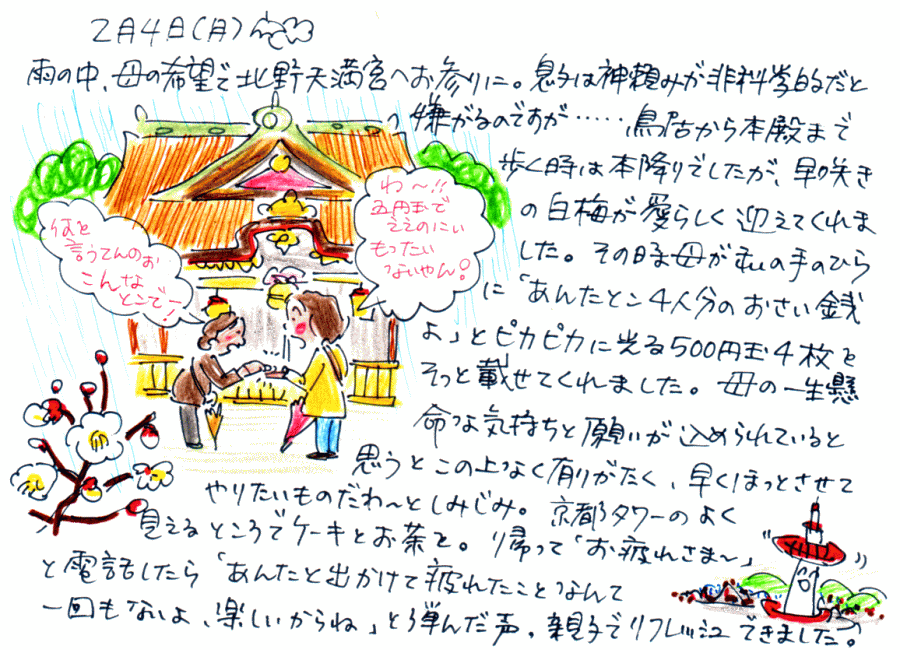 2月4日(月)
雨の中、母の希望で北野天満宮へお参りに。息子は神頼みが非科学的だと
嫌がるのですが……鳥居から本殿まで
歩く時は本降りでしたが、早咲き
の白梅が愛らしく迎えてくれま
した。その時母が私の手のひら
に「あんたとこ4人分のおさい銭
よ」とピカピカに光る500円玉4枚を
そっと載せてくれました。母の一生懸
命な気持ちと願いが込められていると
思うとこの上なく有りがたく、早くほっとさせて
やりたいものだわ〜としみじみ。京都タワーのよく
見えるところでケーキとお茶を。帰って「お疲れさま〜」
と電話したら「あんたと出かけて疲れたことなんて
一回もないよ、楽しいからね」と弾んだ声。親子でリフレッシュできました。
わ〜!!
五円玉で
ええのにぃ
もったい
ないやん!
何を
言うてんのぉ
こんな
とこでー!